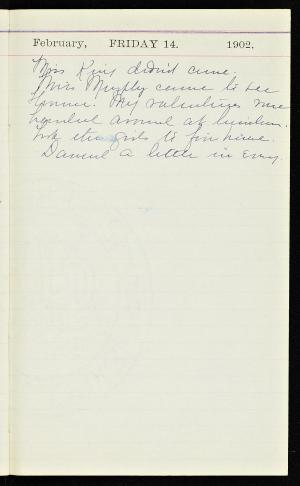 February, FRIDAY 14. 1902.
Miss King didn't come.
Miss Murphy came to see
. My valentines were
handed around at luncheon.
Took the girls to
Danced a little in evng.